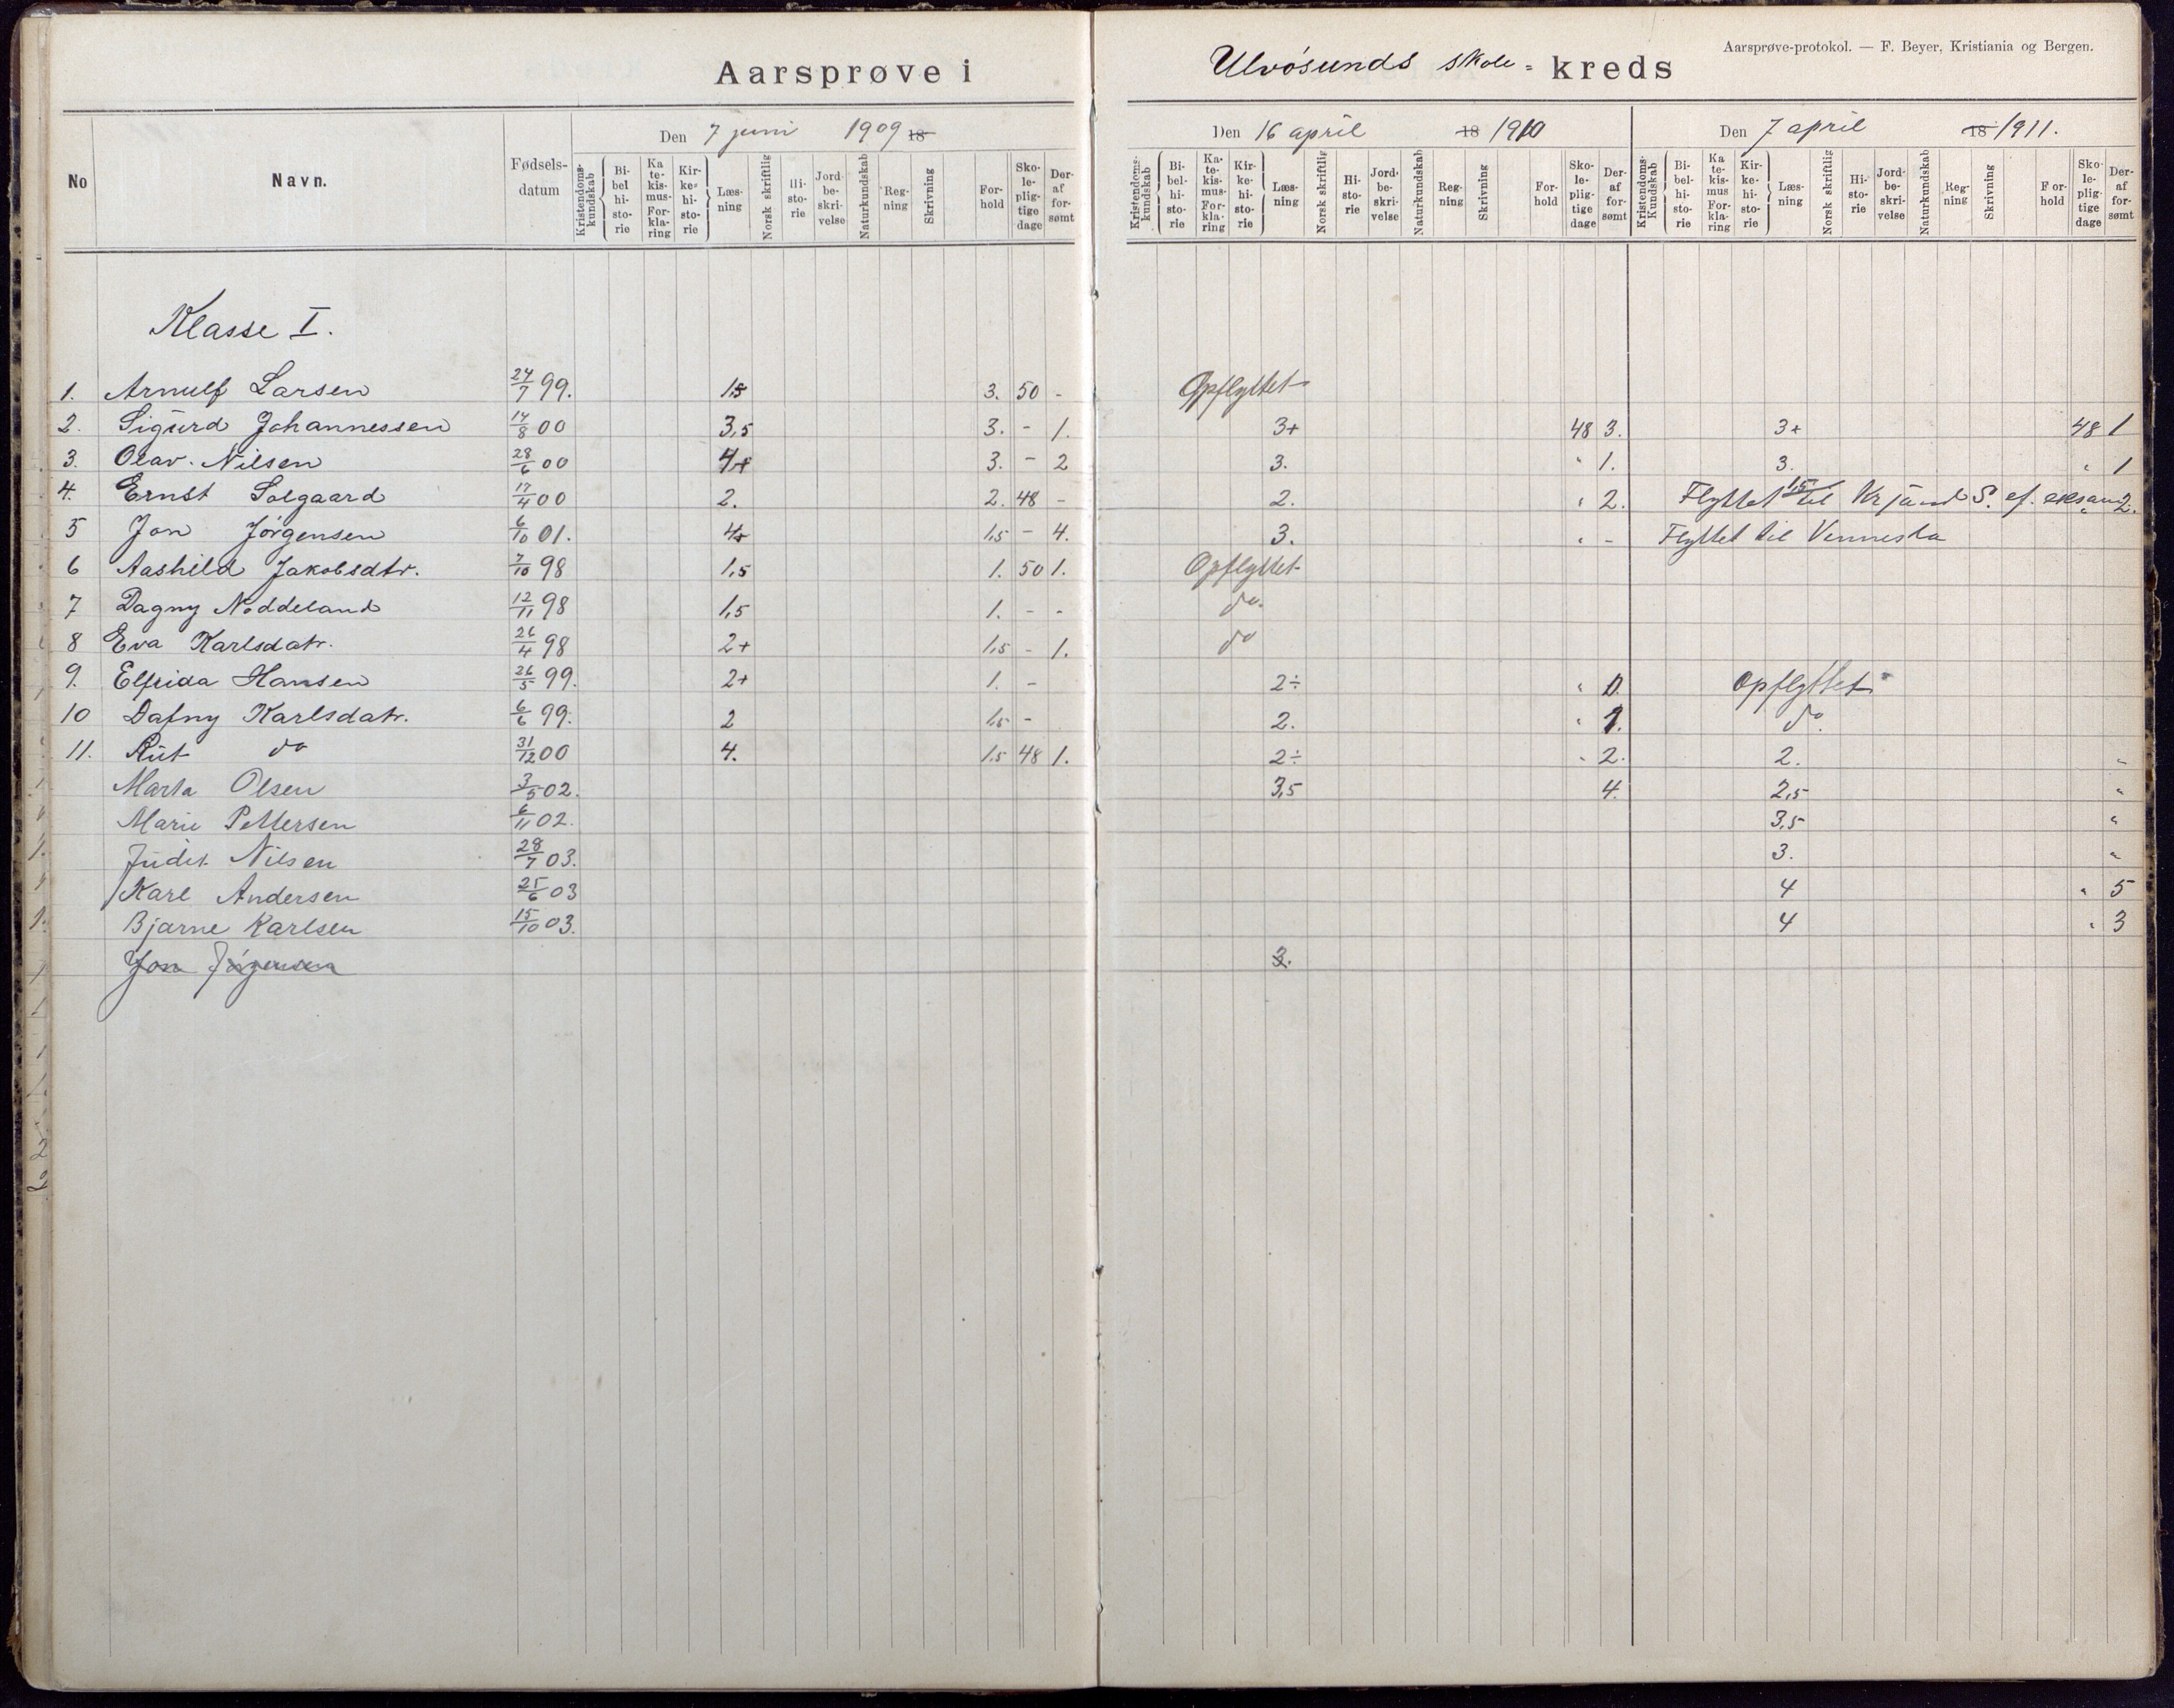 Aarsprøve-protokol. — F. Beyer, Kristiania og Bergen.
Aarsprøve i Ulvøsunds skole- kreds
No Navn. Fødselsdatum Den 7 juni 1909 18 Den 16 april 18 1910 Den 7 april 18 1911.
Kristendomskundskab Bibelhistorie Katekismus-Forklaring Kirkehistorie Læsning Norsk skriftlig Historie Jordbeskrivelse Naturkundskab Regning Skrivning Forhold Skolepligtige dage Deraf forsømt
Kristendomskundskab Bibelhistorie Katekismus-Forklaring Kirkehistorie Læsning Norsk skriftlig Historie Jordbeskrivelse Naturkundskab Regning Skrivning Forhold Skolepligtige dage Deraf forsømt
Kristendoms-Kundskab Bibelhistorie Katekismus-Forklaring Kirkehistorie Læsning Norsk skriftlig Historie Jordbeskrivelse Naturkundskab Regning Skrivning Forhold Skolepligtige dage Deraf forsømt
Klasse I.
1. Arnulf Larsen 24/7 99. 1,5 3. 50 - Opflyttet
2. Sigurd Johannessen 14/8 00 3,5 3. - 1. 3+ 48 3. 3+ 48 1
3. Olav Nilsen 28/6 00 4+ 3. - 2 3. " 1. 3. " 1
4. Ernst Solgaard 17/4 00 2. 2. 48 - 2. " 2. Flyttet 1,5 til Kr sand S. ef. eksam " 2.
5 Jon Jørgensen 6/10 01. 4+ 1,5 - 4. 3. " - Flyttet til Vennesla
6 Aashild Jakobsdtr. 7/10 98 1,5 1. 50 1. Opflyttet
7 Dagny Noddeland 12/11 98 1,5 1. - - do.
8 Eva Karlsdatr. 26/4 98 2+ 1,5 - 1. do
9. Elfrida Hansen 26/5 99. 2+ 1. - 2÷ " 0. Opflyttet
10 Dafny Karlsdatr. 6/6 99. 2 1,5 - 2. " 1. do.
11. Rut do 31/12 00 4. 1.5 48 1. 2÷ " 2. 2. "
Marta Olsen 3/5 02. 3,5 4. 2,5 "
Marie Pettersen 6/11 02. 3,5 "
Judit Nilsen 28/7 03. 3. "
Karl Andersen 25/6 03 4 " 5
Bjarne Karlsen 15/10 03. 4 " 3
Jon Jørgensen 3.